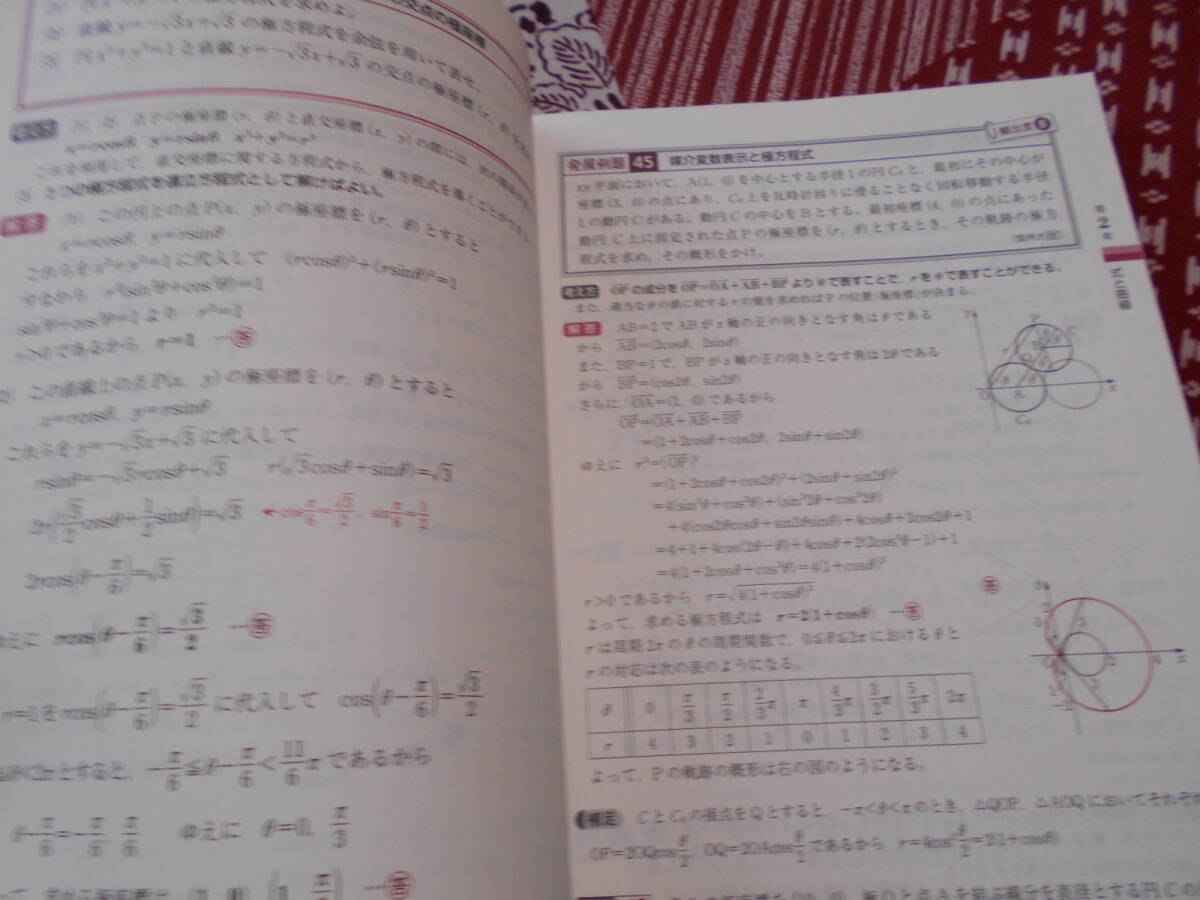 交点の極座標
(2) 直線y=-√3x+√3の極方程式を余弦を用いて表せ。
(3) 円x²+y²=1と直線y=-√3x+√3の交点の極座標(r, θ)
考え方 (1), (2) 点Pの極座標(r, θ)と直交座標(x, y)の間には、次の関係
x=rcosθ, y=rsinθ, x²+y²=r²
これを利用して、直交座標に関する方程式から、極方程式を導くことができる
(3) 2つの極方程式を連立方程式として解けばよい。
解答 (1) この円上の点P(x, y)の極座標を(r, θ)とすると
x=rcosθ, y=rsinθ
これらをx²+y²=1に代入して (rcosθ)²+(rsinθ)²=1
r²(sin²θ+cos²θ)=1
sin²θ+cos²θ=1より r²=1
r>0であるから r=1 …答
(2) この直線上の点P(x, y)の極座標を(r, θ)とすると
x=rcosθ, y=rsinθ
これらをy=-√3x+√3に代入して
rsinθ=-√3rcosθ+√3 r(√3cosθ+sinθ)=√3
2r(√3/2cosθ+1/2sinθ)=√3 ←cosπ/6=√3/2, sinπ/6=1/2
2rcos(θ-π/6)=√3
ゆえに rcos(θ-π/6)=√3/2 …答
r=1をrcos(θ-π/6)=√3/2に代入して cos(θ-π/6)=√3/2
θ<2πとすると、-π/6≦θ-π/6<11/6πであるから
θ-π/6=-π/6, π/6 ゆえに θ=0, π/3
(1, 0), (1, π/3) …答
頻出度B
発展例題 45 媒介変数表示と極方程式
xy平面において、A(1, 0)を中心とする半径1の円C₀と、最初にその中心が
座標(3, 0)の点にあり、C₀上を反時計回りに滑ることなく回転移動する半径
1の動円Cがある。動円Cの中心をBとする。最初座標(4, 0)の点にあった
動円C上に固定された点Pの極座標を(r, θ)とするとき、その軌跡の極方
程式を求め、その概形をかけ。
考え方 OPの成分をOP=OA+AB+BPよりθで表すことで、rをθで表すことができる。
また、適当なθの値に対するrの値を求めればPの位置(極座標)が決まる。
解答 AB=2でABがx軸の正の向きとなす角はθである
から AB=(2cosθ, 2sinθ)
また、BP=1で、BPがx軸の正の向きとなす角は2θである
から BP=(cos2θ, sin2θ)
さらに、OA=(1, 0)であるから
OP=OA+AB+BP
=(1+2cosθ+cos2θ, 2sinθ+sin2θ)
ゆえに r²=|OP|²
=(1+2cosθ+cos2θ)²+(2sinθ+sin2θ)²
=4(sin²θ+cos²θ)+(sin²2θ+cos²2θ)
+4(cos2θcosθ+sin2θsinθ)+4cosθ+2cos2θ+1
=4+1+4cos(2θ-θ)+4cosθ+2(2cos²θ-1)+1
=4(1+2cosθ+cos²θ)=4(1+cosθ)²
r>0であるから r=√4(1+cosθ)²
よって、求める極方程式は r=2(1+cosθ) …答
rは周期2πのθの周期関数で、0≦θ≦2πにおけるθと
rの対応は次の表のようになる。
θ 0 π/3 π/2 2/3π π 4/3π 3/2π 5/3π 2π
r 4 3 2 1 0 1 2 3 4
よって、Pの軌跡の概形は右の図のようになる。
補足 CとC₀の接点をQとすると、-π<θ<πのとき、△QOP, △AOQにおいてそれぞれ
OP=2OQcosθ/2, OQ=2OAcosθ/2であるから r=4cos²θ/2=2(1+cosθ)
y
P
C
B
Q
O
A
x
C₀
答
O
2
4
x
第2章
式と曲線